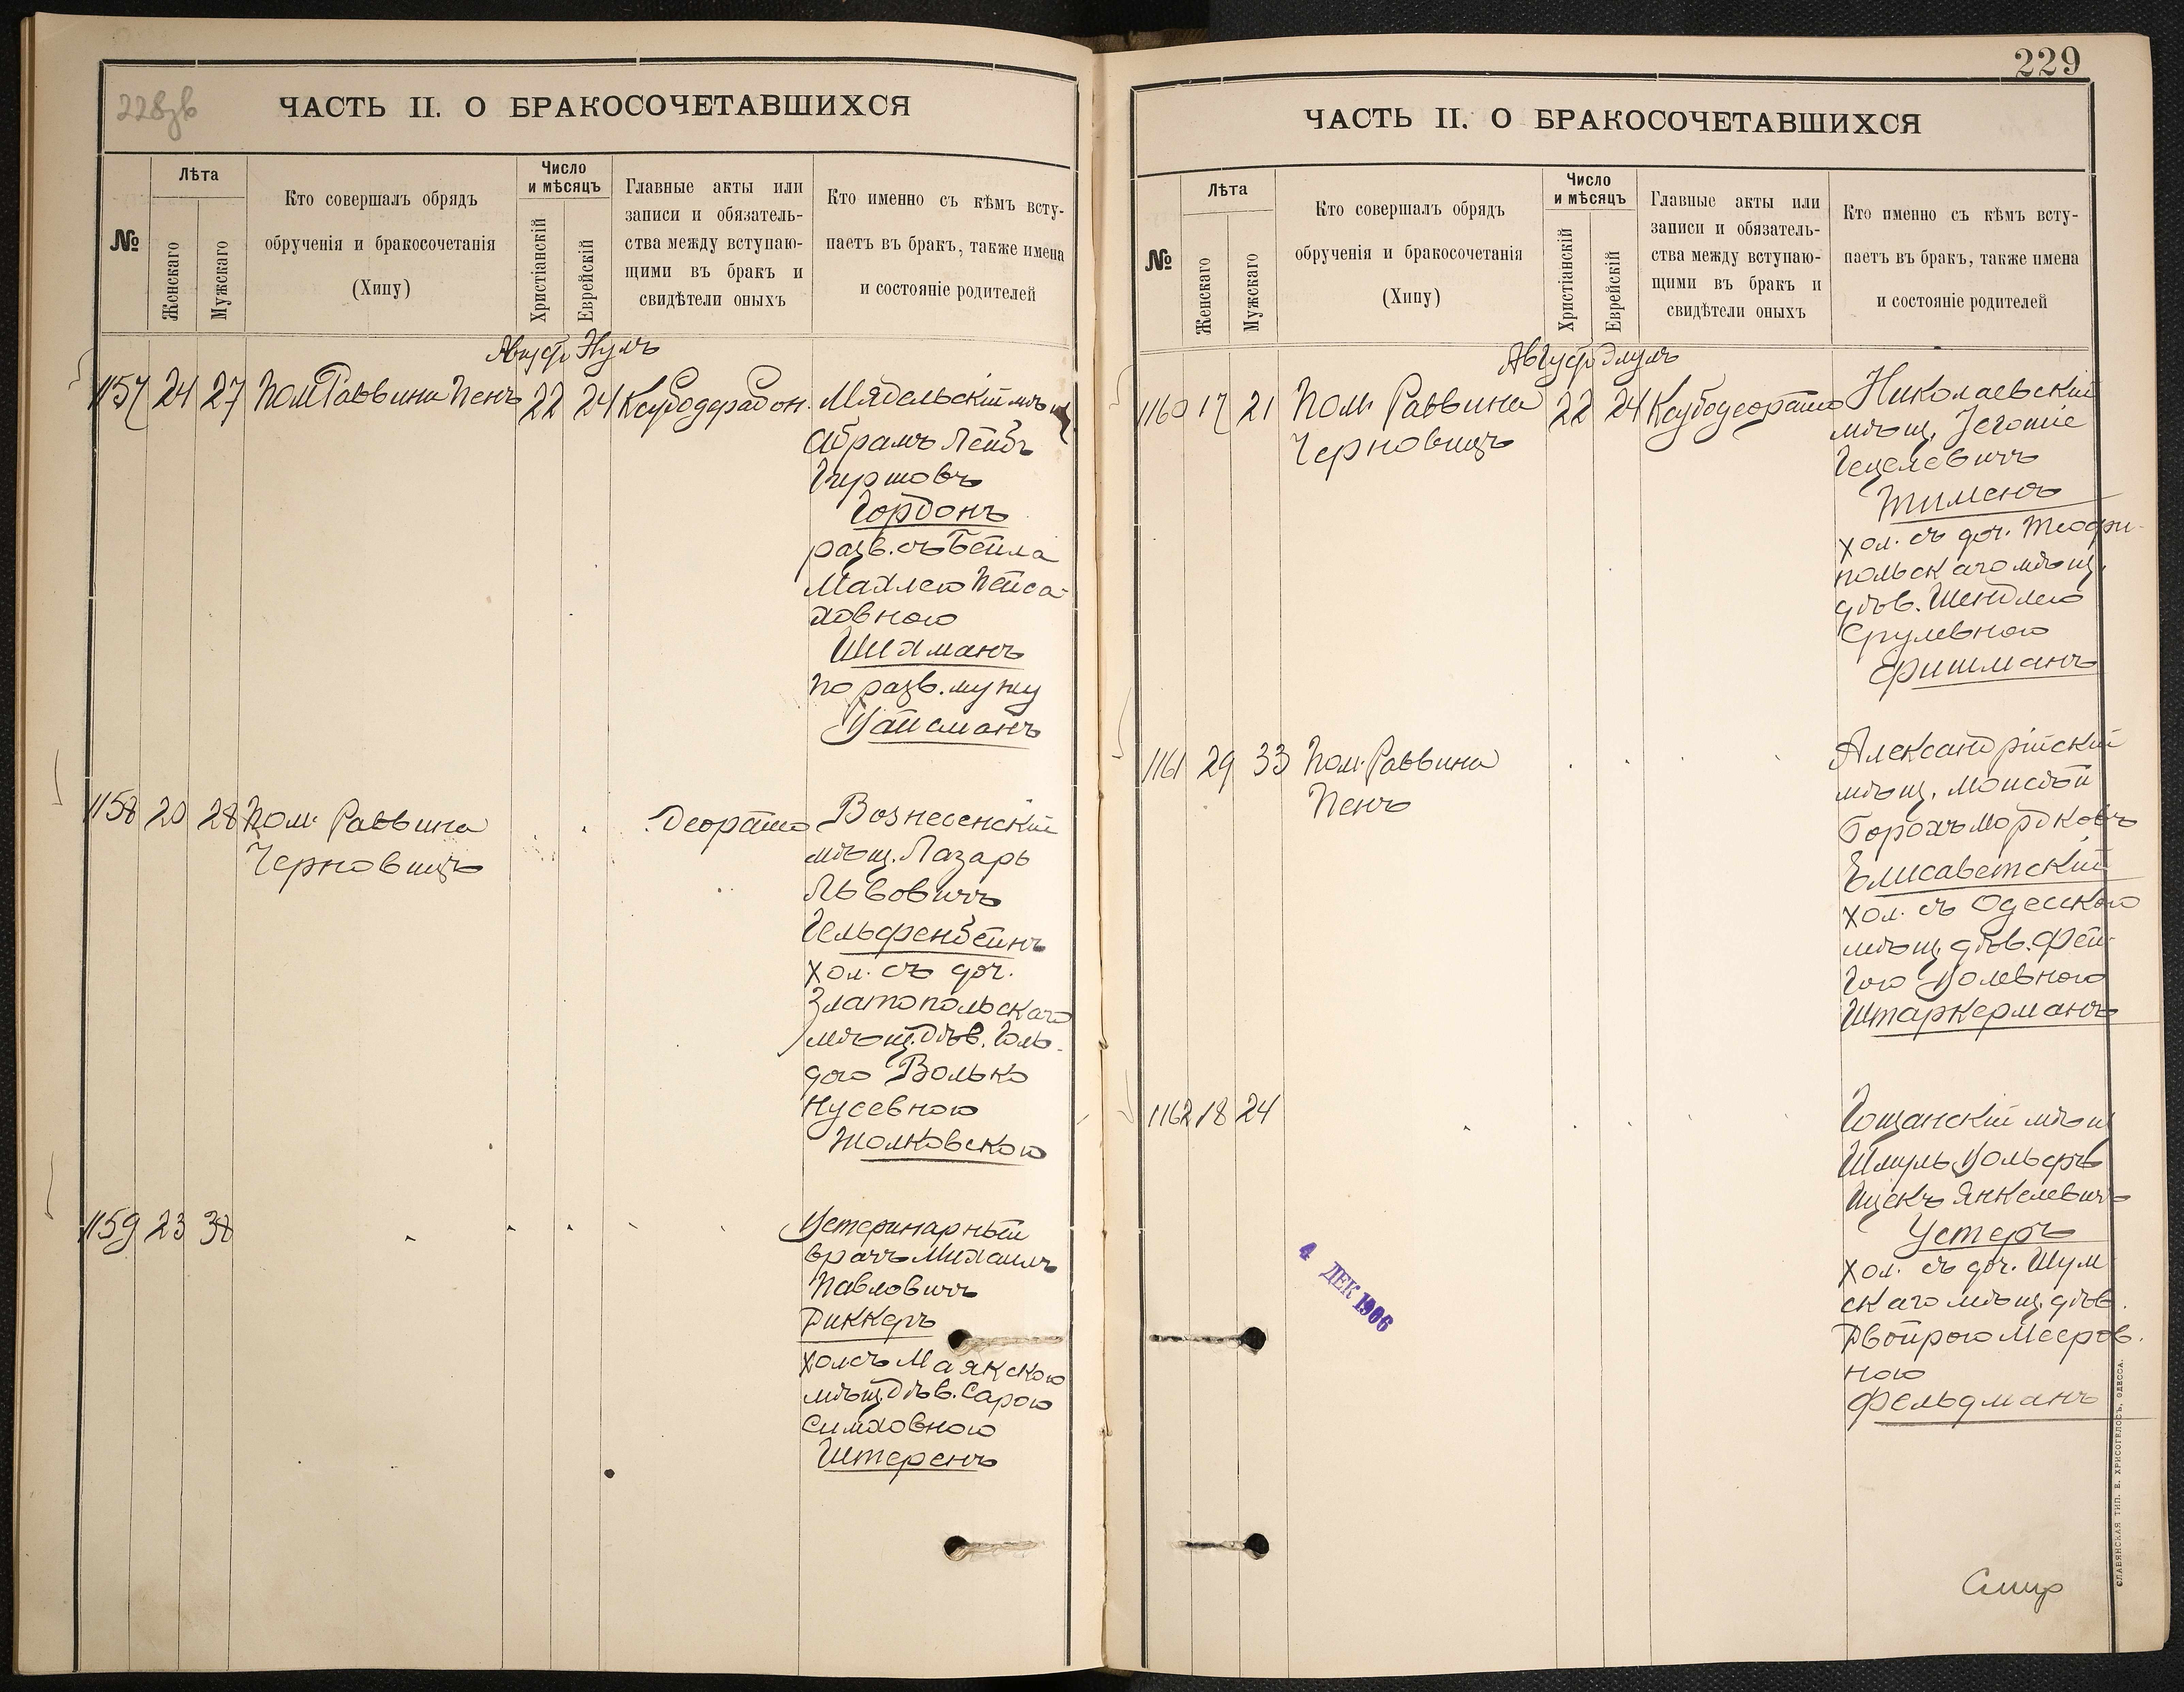 228зв
ЧАСТЬ II. О БРАКОСОЧЕТАВШИХСЯ
№
Лѣта
Женскаго
Мужскаго
Кто совершалъ обрядъ
обрученія и бракосочетанія
(Хипу)
Число
и мѣсяцъ
Христіанскій
Еврейскій
Главные акты или
записи и обязатель-
ства между вступаю-
щими въ бракъ и
свидѣтели оныхъ
Кто именно съ кѣмъ всту-
паетъ въ бракъ, также имена
и состояніе родителей
Август
1157 24 27 Пом Раввина Пенъ 22 24
Мядельскій мѣщ
Абрамъ Лейбъ
Гиршовъ
Гордонъ
разв. съ Бейла
Махлею Пейса-
ховною
Шихманъ
по разв. мужу
Вайсманъ
1158 20 28 Пом. Раввина
Черновицъ
Деорайто
Вознесенскій
мѣщ. Лазарь
Львовичъ
Гельфенбейнъ
хол. съ доч.
Златопольскаго
мѣщ. дѣв. Голь-
дою Волько
Нусевною
Жолковскою
1159 23 38
Ветеринарный
врачъ Михаилъ
Павловичъ
Риккеръ
хол съ Маякскою
мѣщ. дѣв. Сарою
Симховною
Штеренъ
229
ЧАСТЬ II. О БРАКОСОЧЕТАВШИХСЯ
№
Лѣта
Женскаго
Мужскаго
Кто совершалъ обрядъ
обрученія и бракосочетанія
(Хипу)
Число
и мѣсяцъ
Христіанскій
Еврейскій
Главные акты или
записи и обязатель-
ства между вступаю-
щими въ бракъ и
свидѣтели оныхъ
Кто именно съ кѣмъ всту-
паетъ въ бракъ, также имена
и состояніе родителей
Август Элулъ
1160 17 21 Пом. Раввина 22 24
Черновицъ
Николаевскій
мѣщ.
Гецелевичъ
Тименъ
хол. съ доч. Теофи-
польскаго мѣщ.
дѣв. Шейндлею
Срулевною
Фришманъ
1161 29 33 Пом. Раввина
Пенъ
Александрійскій
мѣщ. Моисѣй
Борохъ Мордковъ
Елисаветскій
хол. съ Одесскою
мѣщ. дѣв. Фей-
гою Волевною
Штаркерманъ
1162 18 24
Гощанскій мѣщ
Шмуль Вольфъ
Ицекъ Янкелевичъ
Устеръ
хол. съ доч. Шум
скаго мѣщ. дѣв.
Двойрою Мееров.
ною
Фельдманъ
4 ДЕК 1906
СЛАВЯНСКАЯ ТИП. Е. ХРИСОГЕЛОСЪ, ОДЕССА.